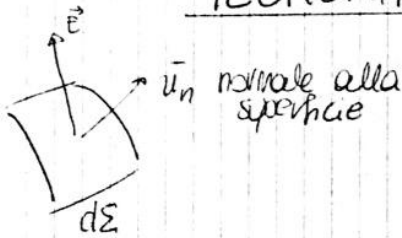 E⃗
u̅n normale alla
superficie
dΣ